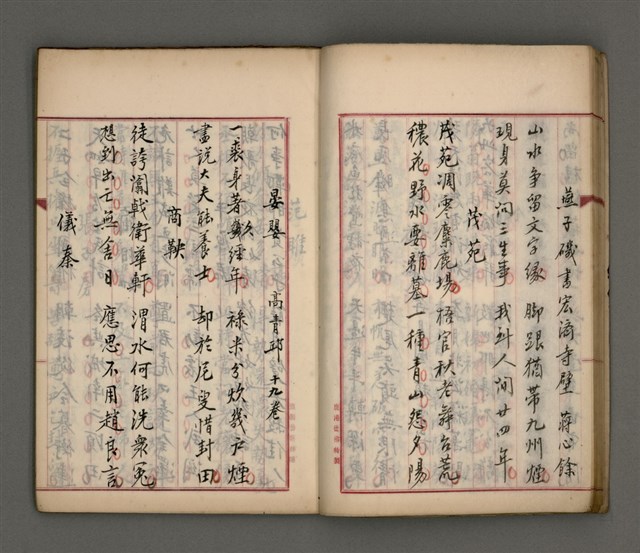 燕子磯書宏濟寺壁 蔣心餘
山水爭留文字緣 脚跟猶帶九州煙
現身莫問三生事 我到人間廿四年
茂苑
茂苑凋零麋鹿場 梧宮秋老舞台荒
穠花野水要離墓 一種青山怨夕陽
晏嬰 高青邱 十九卷
一裘身著歎經年 久 祿米分炊幾戶煙
盡說大夫能養士 却於尼叟惜封田
商鞅
徒誇闟戟衛華軒 渭水何能洗衆冤
想到出亡無舍日 應思不用趙良言
儀秦